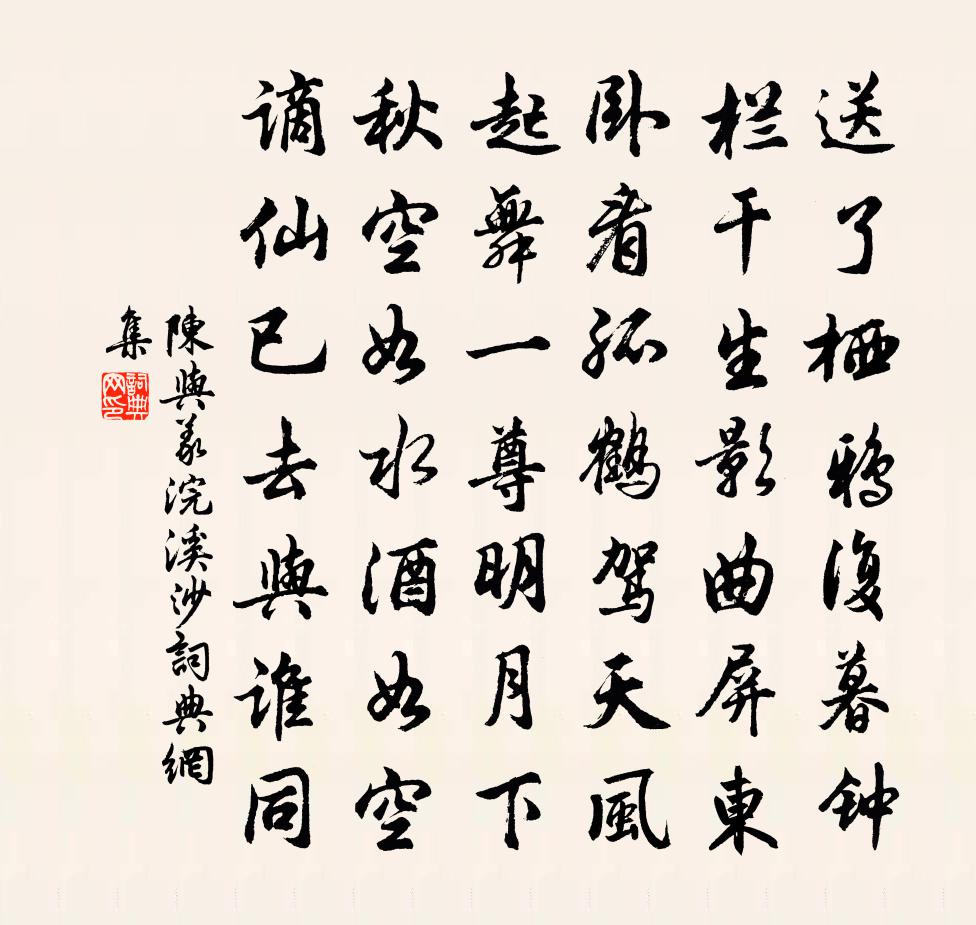 送了栖鸦復暮钟
栏干生影曲屏東
卧看孤鹤驾天風
起舞一尊明月下
秋空如水酒如空
谪仙已去與谁同
陳與義浣溪沙詞典網
集
詞典
网印